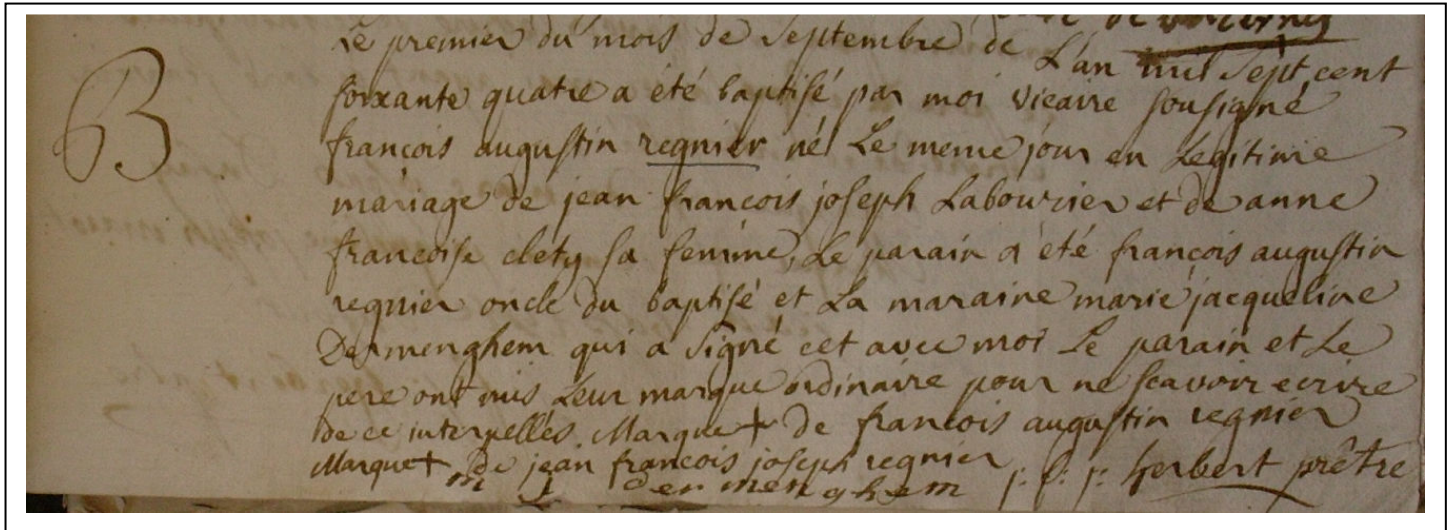 Le premier du mois de septembre de L'an mil sept cent
B
soixante quatre a été baptisé par moi vicaire sousigné
françois augustin regnier né Le meme jour en Legitime
mariage de jean françois joseph Labourier et de anne
françoise clety sa femme, Le parain a été françois augustin
regnier oncle du baptisé et La maraine marie jacqueline
Dermenghem qui a signé cet avec moi Le parain et Le
pere ont mis Leur marque ordinaire pour ne scavoir ecrire
de ce interpellés. Marque + de françois augustin regnier
Marque + de jean françois joseph regnier
m j dermenghem j: f: j: herbert prêtre